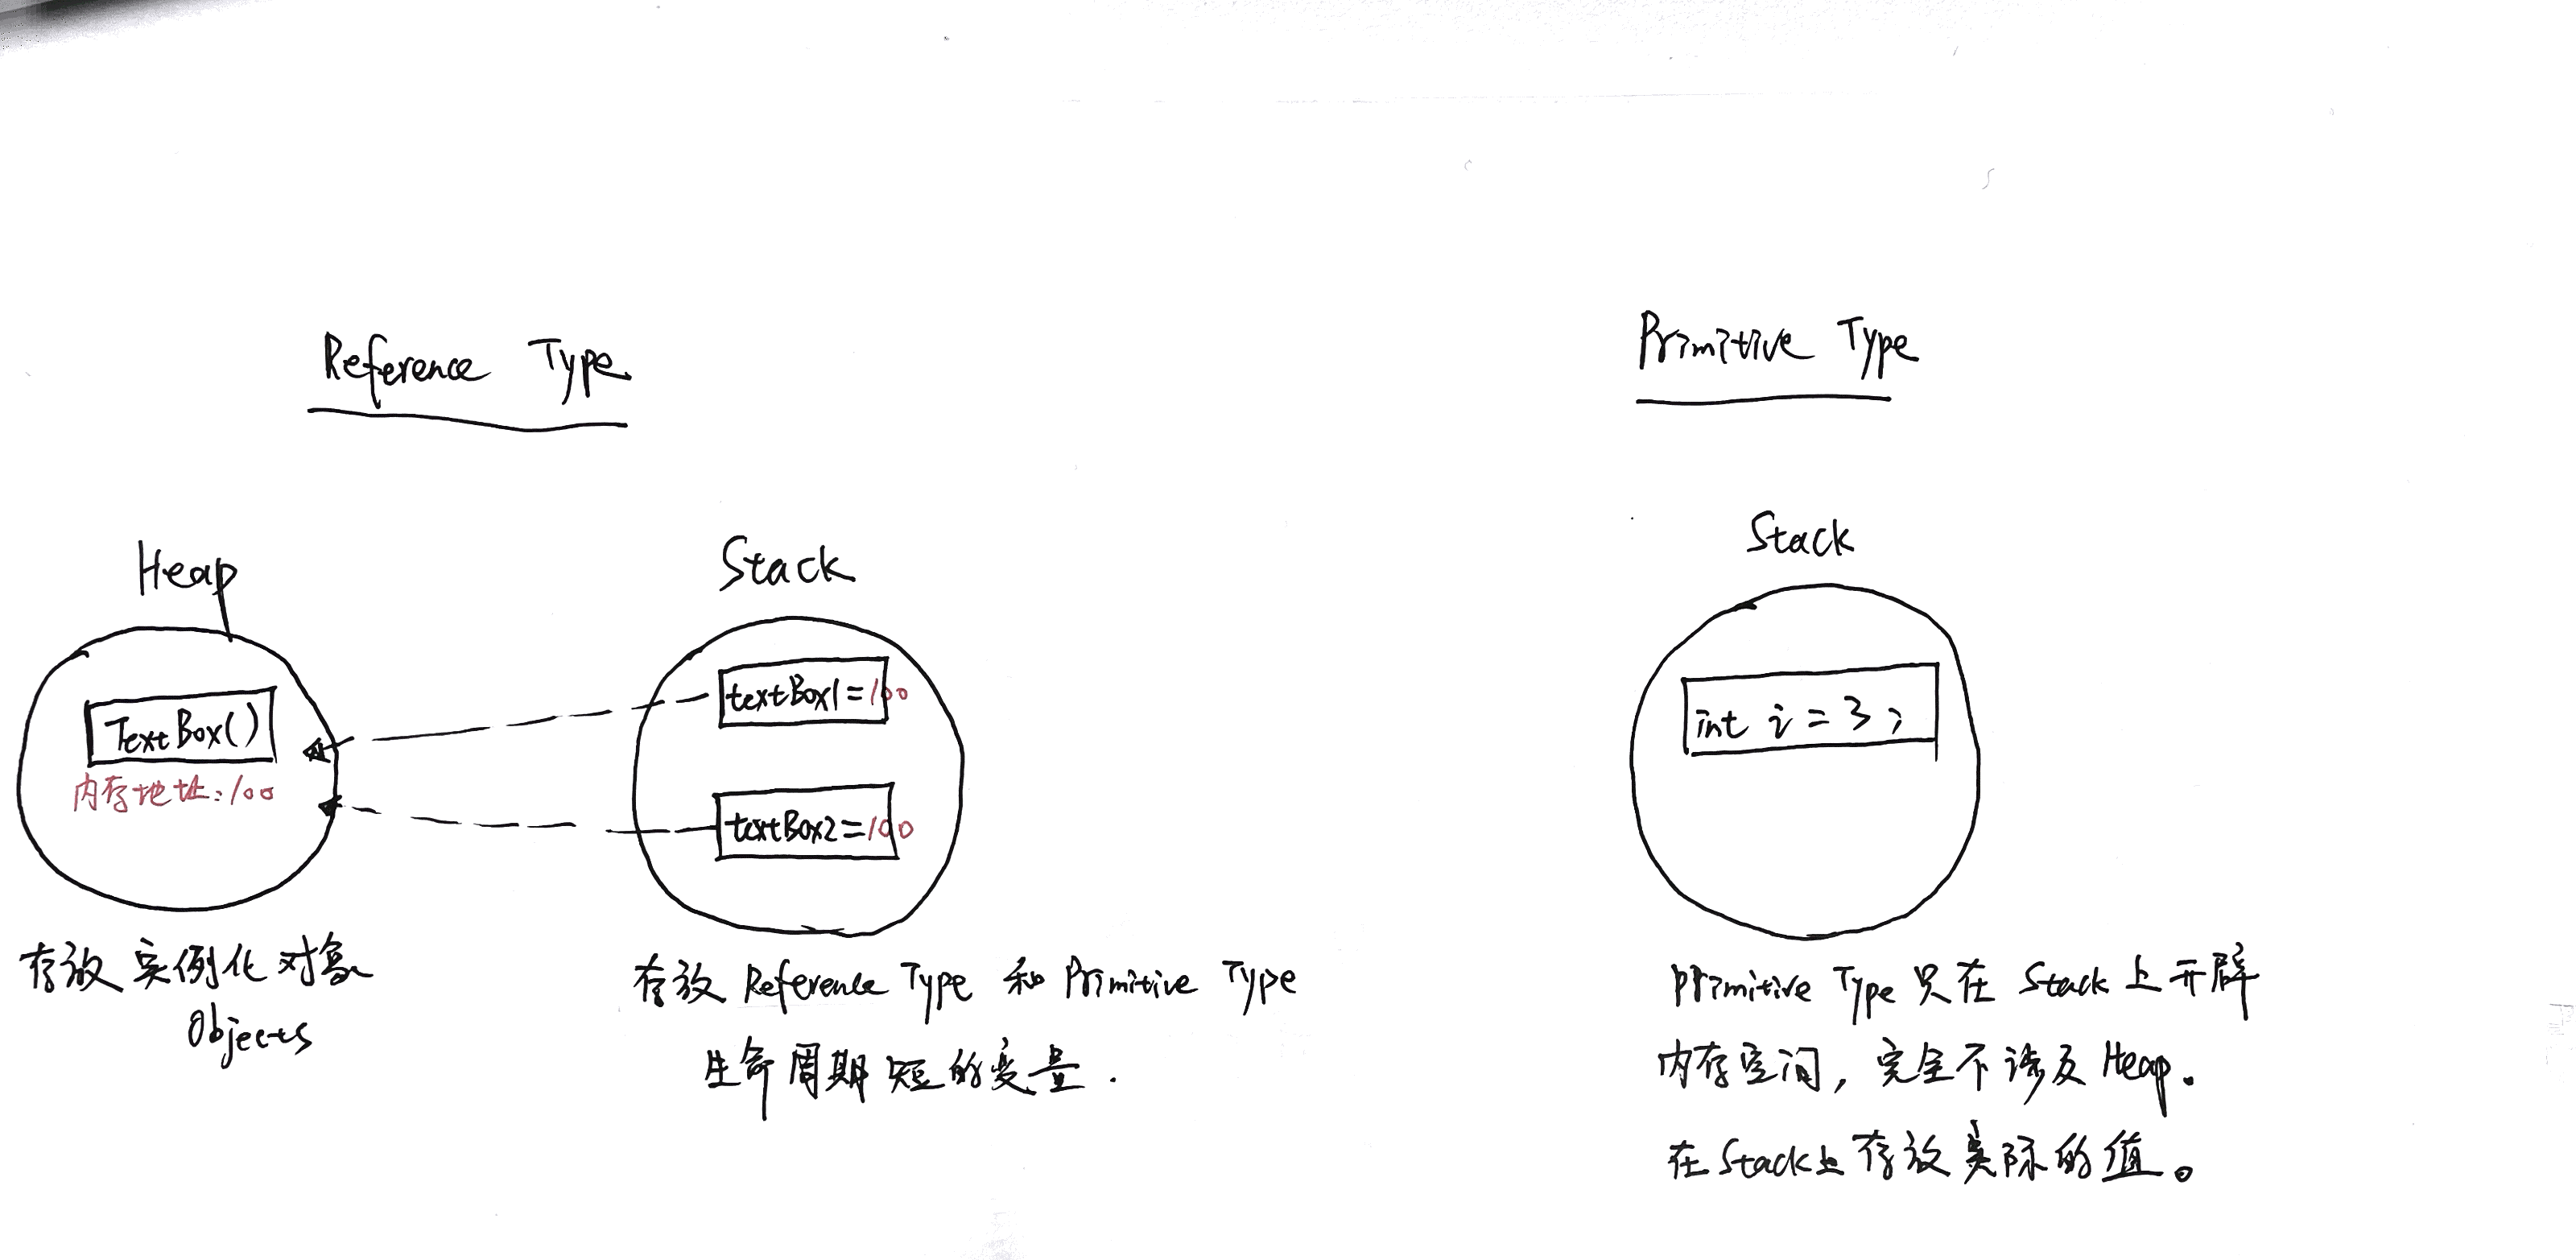 Reference Type
Heap
TextBox()
内存地址:100
存放实例化对象
Objects
Stack
textBox1=100
textBox2=100
存放 Reference Type 和 Primitive Type
生命周期短的变量.
Primitive Type
Stack
int i = 3;
Primitive Type 只在 Stack 上开辟
内存空间, 完全不涉及 Heap.
在 Stack上存放实际的值。